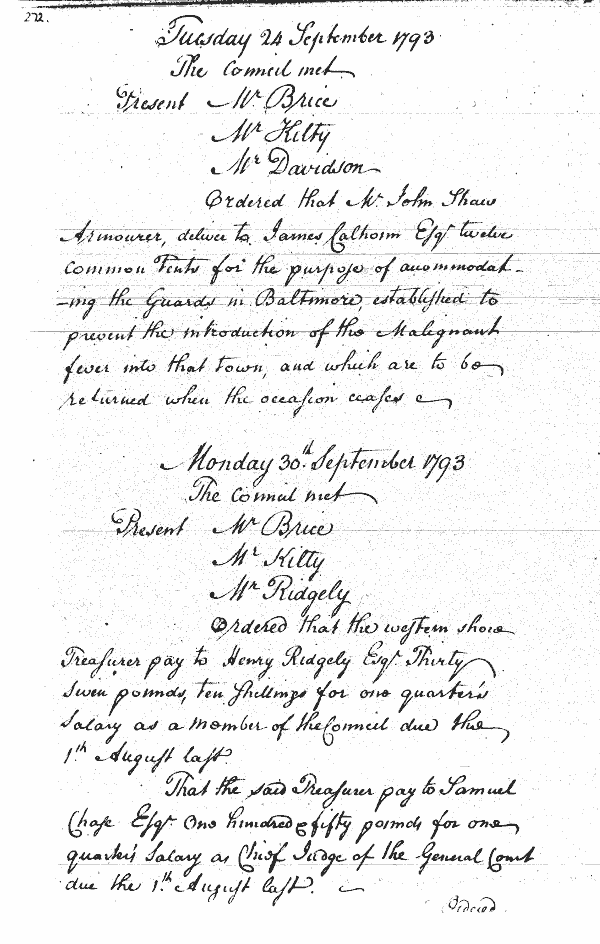 272.
Tuesday 24 September 1793
The Council met
Present Mr Brice
Mr Kilty
Mr Davidson
Ordered that Mr John Shaw
Armourer, deliver to James Calhoun Esqr twelve
common Tents for the purpose of accommodat-
-ing the Guards in Baltimore, established to
prevent the introduction of the Malignant
fever into that town, and which are to be
returned when the occasion ceases
Monday 30th September 1793
The Council met
Present Mr Brice
Mr Kilty
Mr Ridgely
Ordered that the western shore
Treasurer pay to Henry Ridgely Esqr Thirty
seven pounds, ten shillings for one quarter's
Salary as a Member of the Council due the
1th August last.
That the said Treasurer pay to Samuel
Chase Esqr One hundred & fifty pounds for one
quarter's Salary as Chief Judge of the General Court
due the 1th August last.
Ordered